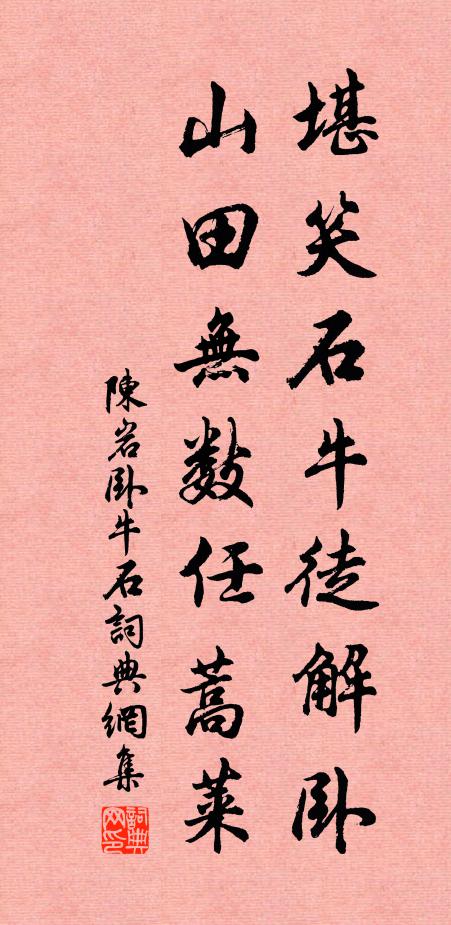 堪笑石牛徒解卧
山田無數任蒿萊
陳岩卧牛石詞典網集
詞典网印